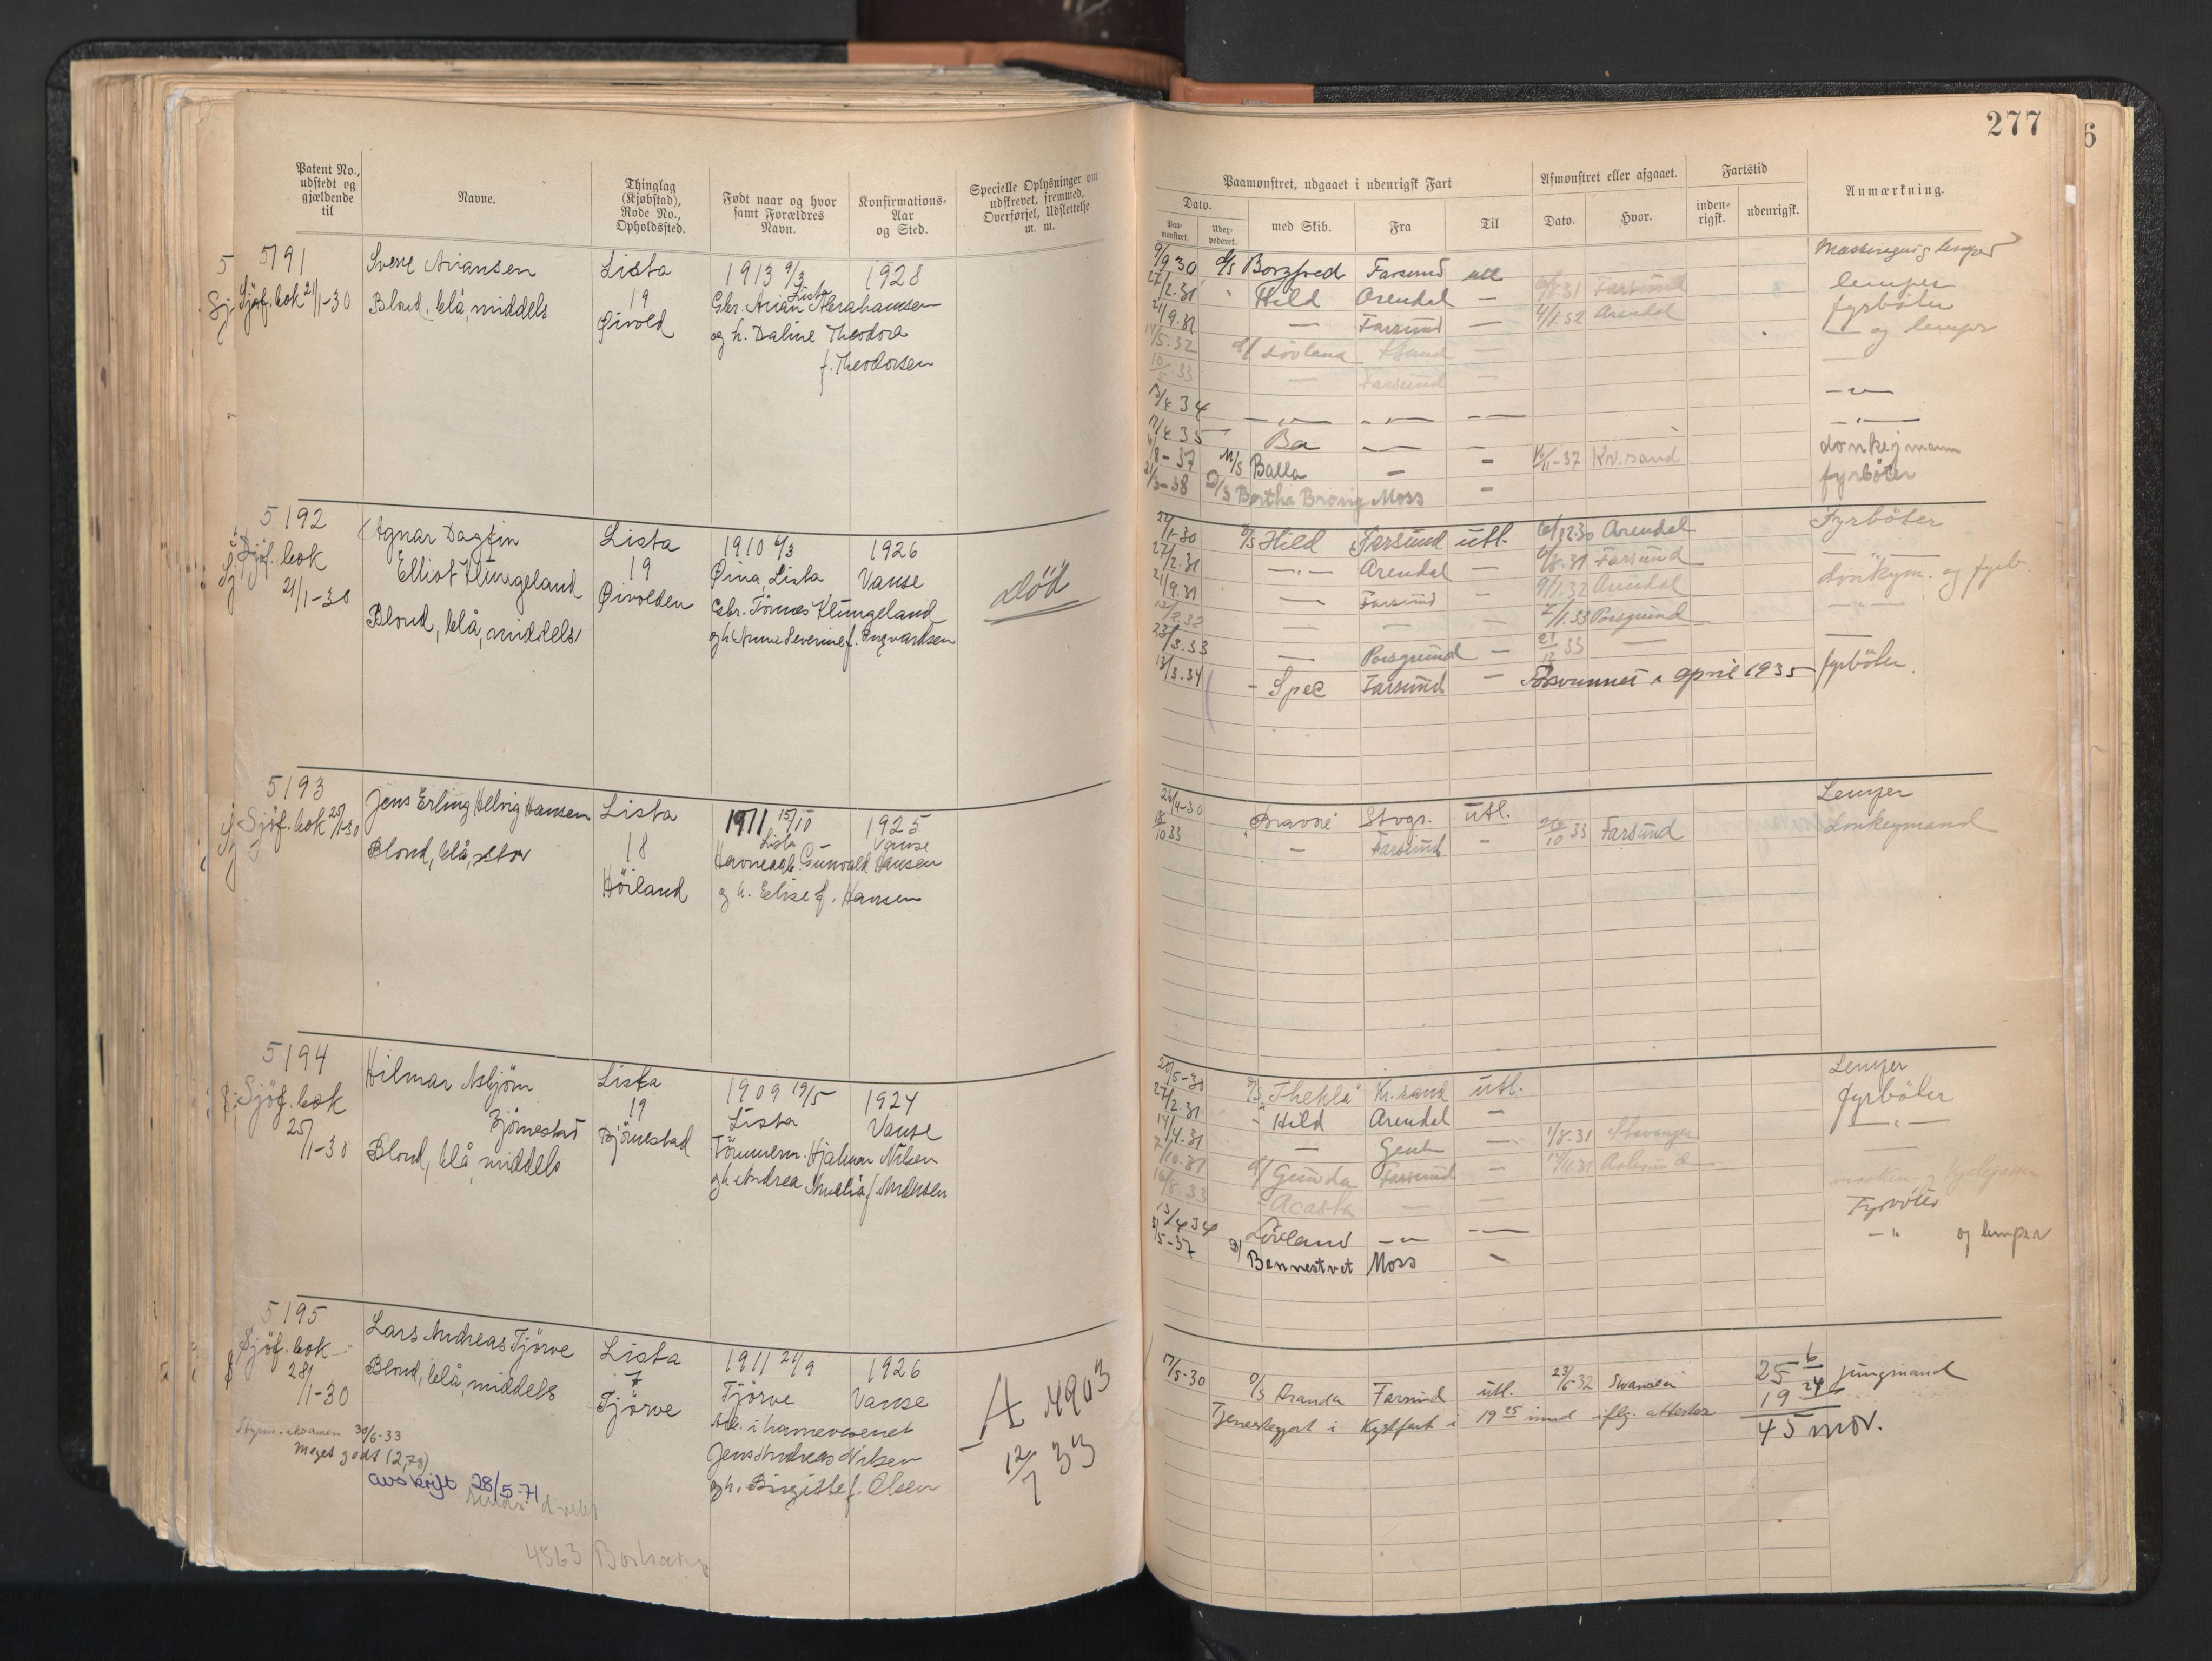 277
6
Patent No., udstedt og gjældende til
Navne.
Thinglag (Kjøbstad), Rode No., Opholdssted.
Født naar og hvor samt Forældres Navn.
Konfirmations-Aar og Sted.
Specielle Oplysninger om udskrevet, fremmed, Overførsel, Udslettelse m. m.
Paamønstret, udgaaet i udenrigsk Fart
Afmønstret eller afgaaet.
Fartstid
Anmærkning.
Dato.
Paa-mønstret.
Udex-pederet.
med Skib.
Fra
Til
Dato.
Hvor.
inden-rigsk.
udenrigsk.
5191
Sjöf. bok 21/1-30
Sverre Ariansen
Blond, blå, middels
Lista
19
Øivold
1913 9/3
Lista
Gbr. Arian Abrahamsen
og h. Daline Theodora
f. Theodorsen
1928
9/9 30 D/S Borgfred Farsund utl
27/2.31 " Hild Arendal — 6/8.31 Farsund lemper
21/9.31 — Farsund — 4/1.32 Arendal fyrböter
14/5.32 Lövland — og lemper
10/5.33 — Farsund —
13/4 34
17/4 35 Ba
/8-37 M/S Balla - - /1-37 Kr.sand donkeymann
21/3-38 D/S Bertha Brövig Moss - fyrböter
5192
Sjöf. bok
21/1-30
Agnar Dagfin
Elliot Klungeland
Blond, blå, middels
Lista
19
Øivolden
1910 6/3
Øina, Lista
Gbr. Tönnes Klungeland
og h. Anne Severine f. Ingvartsen
1926
Vanse
död
22/1-30 D/S Hild Farsund utl. 6/12.30 Arendal Fyrböter
27/2.31 —"— Arendal — 6/8.31 Farsund —"—
21/9.31 — Farsund — 9/1.32 Arendal donkym. og fyrb.
12/2.32 — — — 7/1.33 Porsgrund —"—
23/3.33 — Porsgrund — 21/12 33 —
13/3.34 - Spec Farsund — Forsvunnet i april 1935 fyrböter
5193
Sjöf. bok 25/1-30
Jens Erling Helvig Hansen
Blond, blå, stor
Lista
18
Höiland
1911 15/10
Lista
Havnearb. Gunvald Hansen
og h. Elise f. Hansen
1925
Vanse
26/4-30 "Bravore" Stvgr. utl. Lemper
18/10 33 — Farsund - /10 33 Farsund Donkeymand
5194
Sjöf. bok
25/1-30
Hilmar Asbjörn
Björnestad
Blond, blå, middels
Lista
19
Björnestad
1909 19/5
Lista
Tömmerm. Hjalmar Nilsen
og h. Andrea Amalia f. Andersen
1924
Vanse
20/5-30 D/S "Thekla" Kr.sand utl. Lemper
27/2.31 " Hild Arendal — fyrböter
14/4.31 — Gent — 1/8.31 Stavanger —"—
7/10.31 D/ Gunda Farsund — 14/11.31 Aalesund —
16/8.33 - Acasta — —
13/4 34 Lövland —"— —"— Fyrböter
5/5-37 D/ Bennestvet Moss - —"— og lemper
5195
Sjöf. bok
28/1-30
Styrm. eksamen 30/6-33
Meget godt (2,78)
avskrift 28/5-71
Lars Andreas Tjörve
Blond, blå, middels
Lista
7
Tjörve
1911 21/9
Tjörve
Arb. i havnevesenet
Jens Andreas Nilsen
og h. Birgitte f. Olsen
1926
Vanse
A 4903
— 12/7 33
4563 Borhaug
17/5-30 D/S Aranda Farsund utl. 23/6-32 Swansea 25 6 jungmand
Tjenestegjort i Kystfart i 19 25 mnd iflg. attester 19 24
45 mdr.